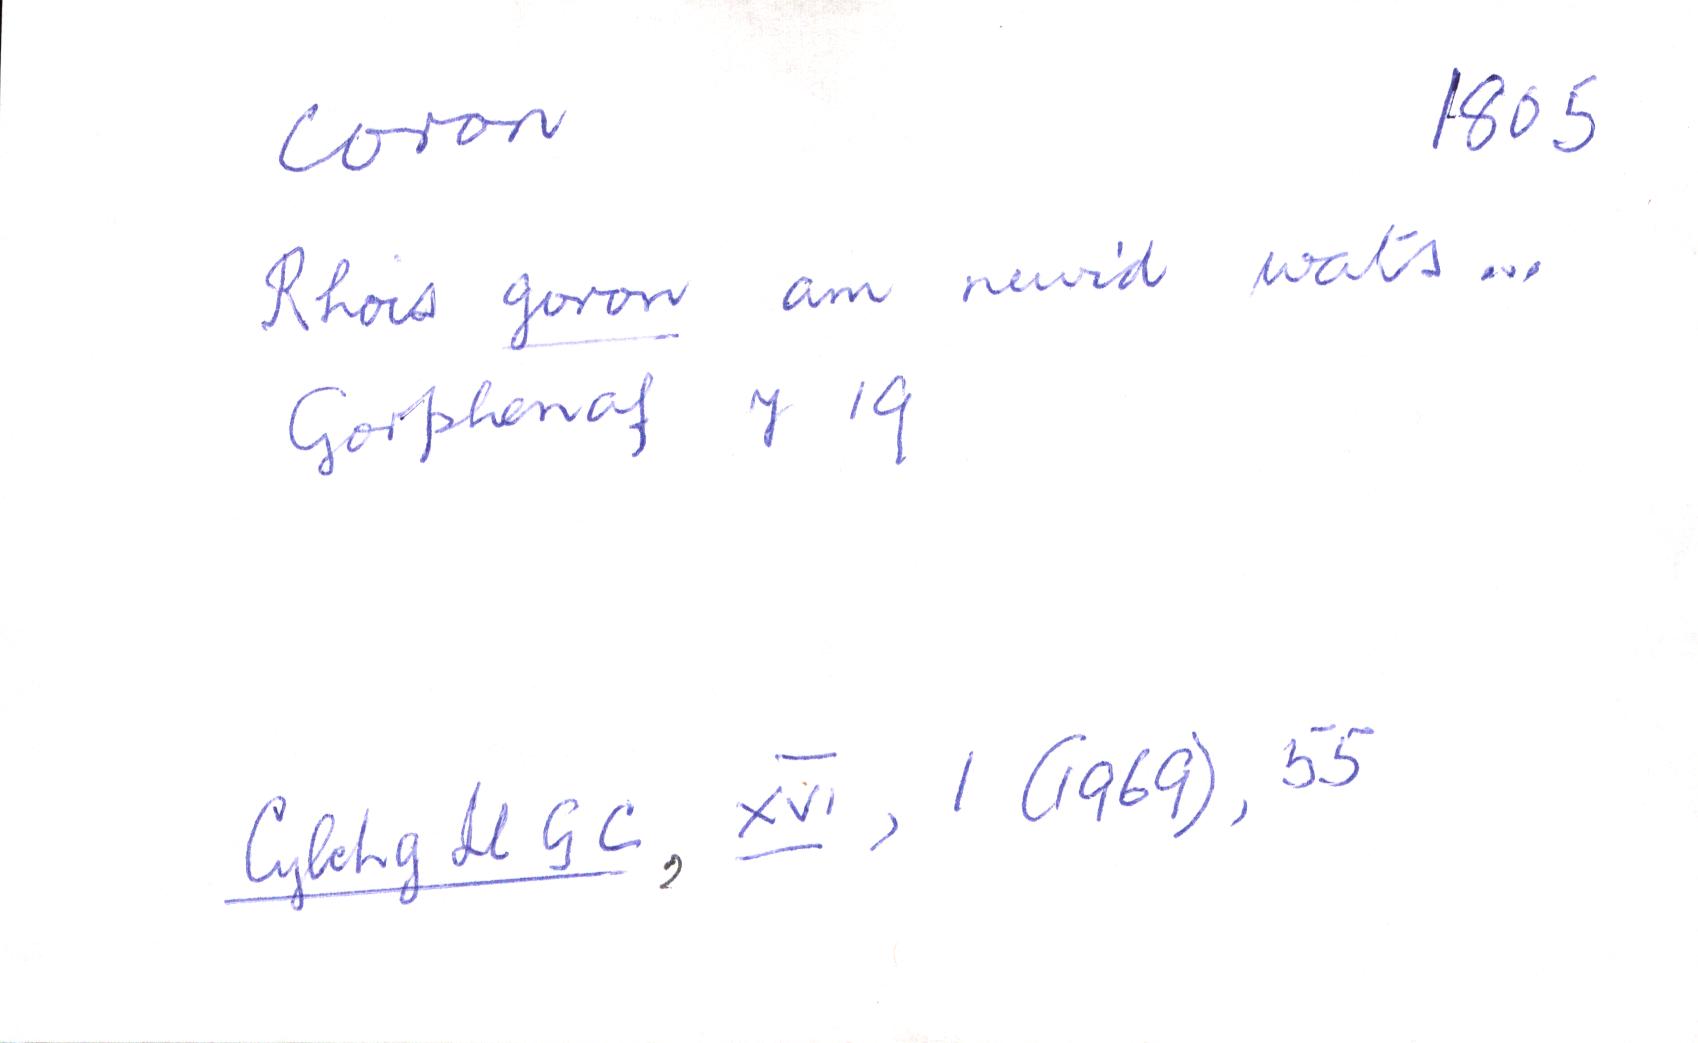 coron 1805
Rhois goron am newid wats ...
Gorphenaf y 19
Cylchg Ll G C, XVI, 1 (1969), 55